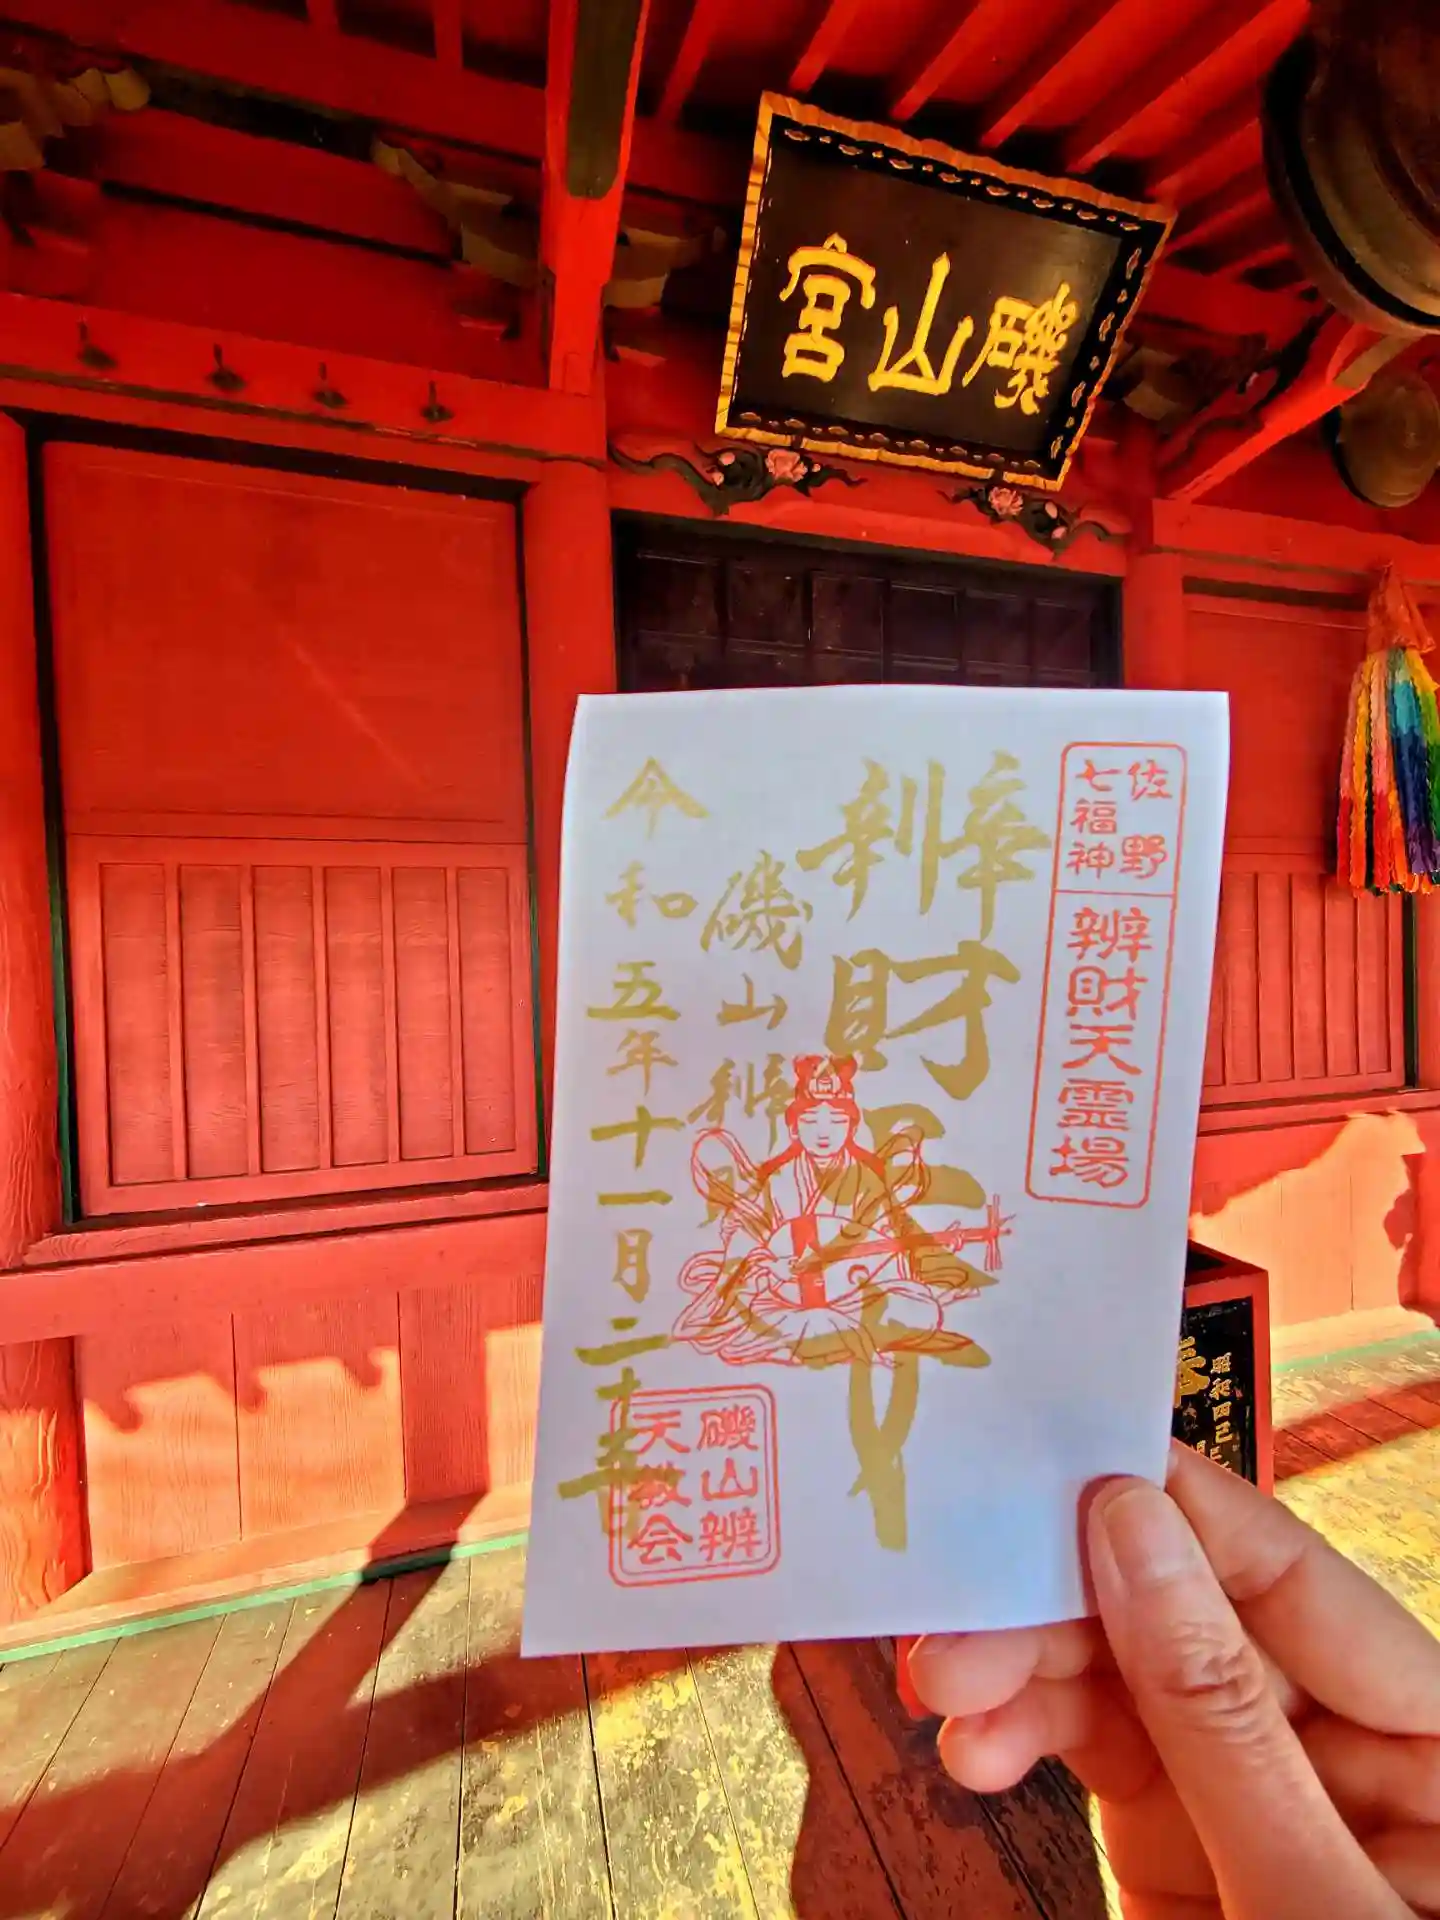 磯山宮
佐野
七福神
辨財天霊場
辨財天
磯山辨財天
令和五年十一月二十
磯山辨
天教会
奉
昭和四己